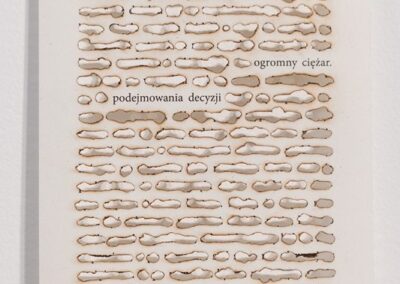 ogromny ciężar.
podejmowania decyzji